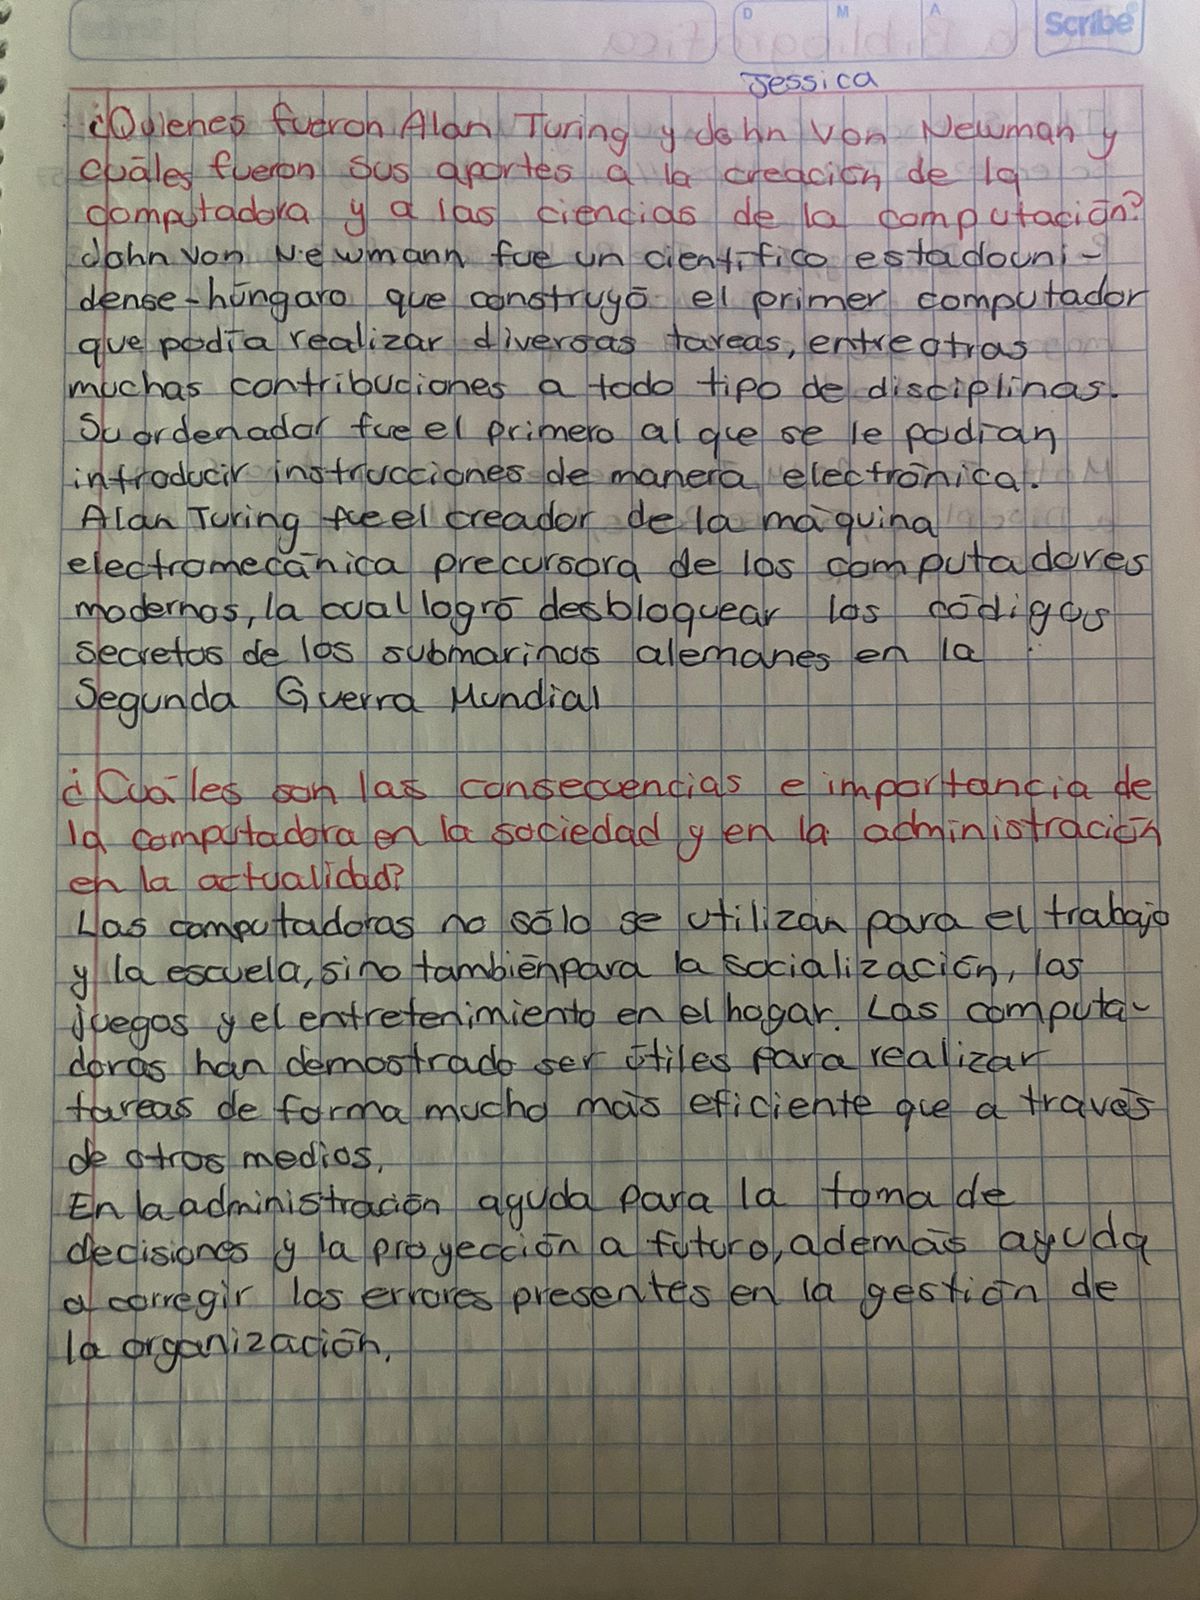 D M A Scribe
Jessica
¿Quienes fueron Alan Turing y John Von Newman y
cuáles fueron sus aportes a la creación de la
computadora y a las ciencias de la computación?
John Von Newmann fue un científico estadouni-
dense-húngaro que construyó el primer computador
que podía realizar diversas tareas, entre otras
muchas contribuciones a todo tipo de disciplinas.
Su ordenador fue el primero al que se le podían
introducir instrucciones de manera electrónica.
Alan Turing fue el creador de la máquina
electromecánica precursora de los computadores
modernos, la cual logró desbloquear los códigos
secretos de los submarinos alemanes en la
Segunda Guerra Mundial
¿Cuáles son las consecuencias e importancia de
la computadora en la sociedad y en la administración
en la actualidad?
Las computadoras no sólo se utilizan para el trabajo
y la escuela, sino también para la socialización, los
juegos y el entretenimiento en el hogar. Las computa-
doras han demostrado ser útiles para realizar
tareas de forma mucho más eficiente que a través
de otros medios.
En la administración ayuda para la toma de
decisiones y la proyección a futuro, además ayuda
a corregir los errores presentes en la gestión de
la organización.